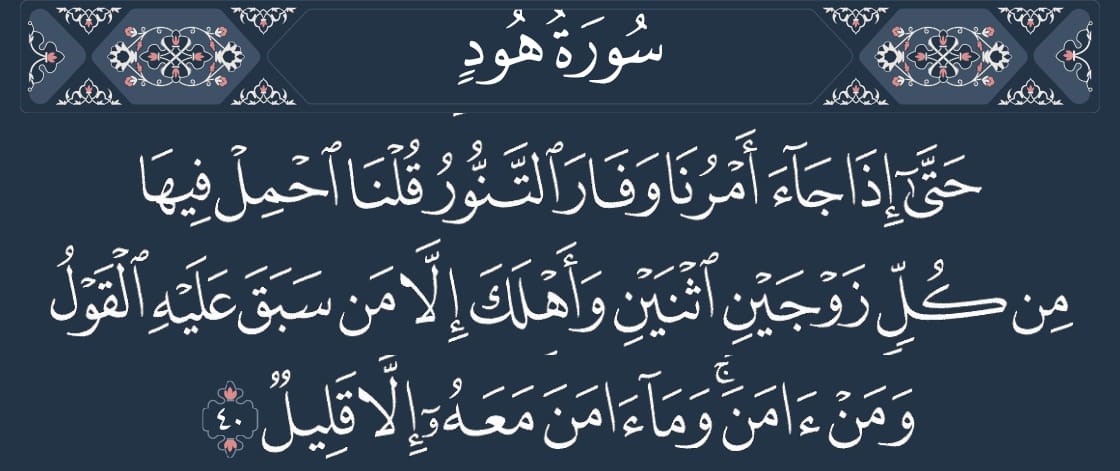 سُورَةُ هُودٍ
حَتَّىٰٓ إِذَا جَآءَ أَمْرُنَا وَفَارَ ٱلتَّنُّورُ قُلْنَا ٱحْمِلْ فِيهَا
مِن كُلٍّ زَوْجَيْنِ ٱثْنَيْنِ وَأَهْلَكَ إِلَّا مَن سَبَقَ عَلَيْهِ ٱلْقَوْلُ
وَمَنْ ءَامَنَ ۚ وَمَآ ءَامَنَ مَعَهُۥٓ إِلَّا قَلِيلٌ ٤٠